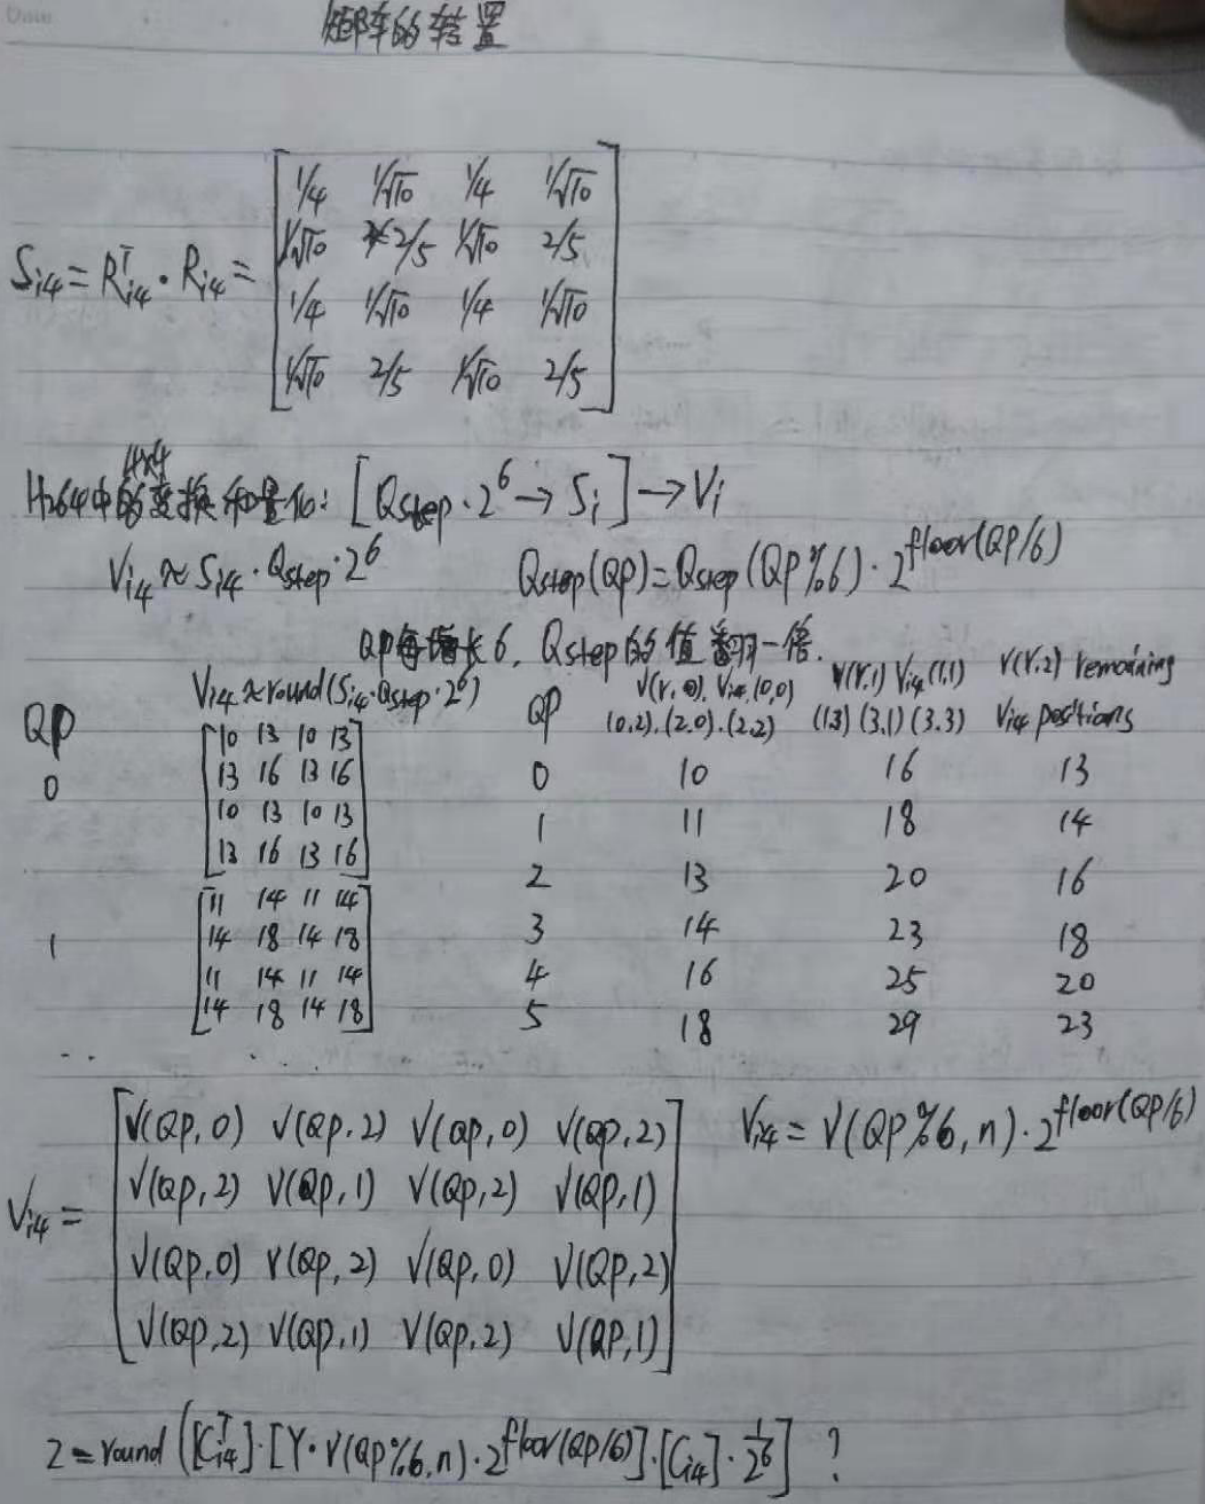 矩阵的转置
Si4 = Ri4^T · Ri4 = [1/4 1/√10 1/4 1/√10
1/√10 2/5 1/√10 2/5
1/4 1/√10 1/4 1/√10
1/√10 2/5 1/√10 2/5]
4x4
H264中的变换和量化: [Qstep · 2^6 → Si] → Vi
Vi4 ≈ Si4 · Qstep · 2^6 Qstep(QP) = Qstep(QP%6) · 2^floor(QP/6)
QP每增长6, Qstep的值翻一倍.
QP Vi4 ≈ round(Si4 · Qstep · 2^6)
0 [10 13 10 13
13 16 13 16
10 13 10 13
13 16 13 16]
1 [11 14 11 14
14 18 14 18
11 14 11 14
14 18 14 18]
...
QP V(r,0), Vi4, (0,0) (0,2), (2,0), (2,2) V(r,1) Vi4 (1,1) (1,3) (3,1) (3,3) V(r,2) remaining Vi4 positions
0 10 16 13
1 11 18 14
2 13 20 16
3 14 23 18
4 16 25 20
5 18 29 23
Vi4 = [V(QP,0) V(QP,2) V(QP,0) V(QP,2)
V(QP,2) V(QP,1) V(QP,2) V(QP,1)
V(QP,0) V(QP,2) V(QP,0) V(QP,2)
V(QP,2) V(QP,1) V(QP,2) V(QP,1)]
Vi4 = V(QP%6, n) · 2^floor(QP/6)
Z = round([Ci4^T] · [Y · V(QP%6, n) · 2^floor(QP/6)] · [Ci4] · 1/2^6] ?